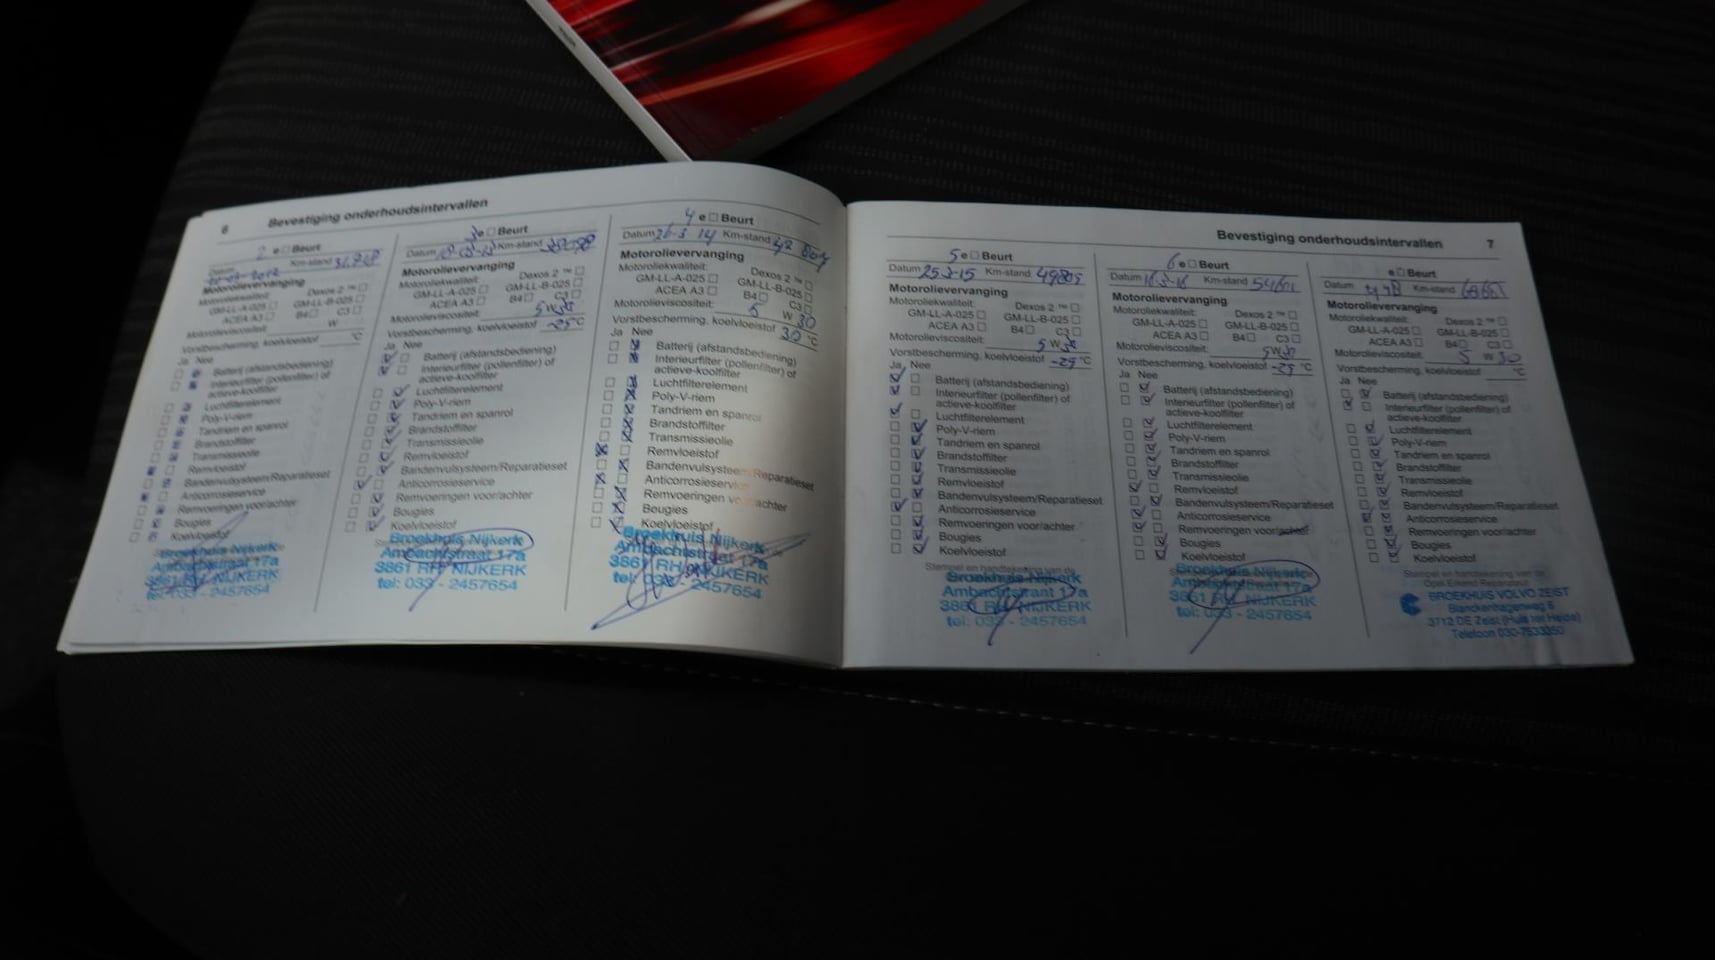 6 Bevestiging onderhoudsintervallen
2 e □ Beurt
Datum Km-stand
Motorolievervanging
Motoroliekwaliteit: Dexos 2 ™ □
GM-LL-A-025 □ GM-LL-B-025 □
ACEA A3 □ B4 □ C3 □
Motorolieviscositeit: W
Vorstbescherming, koelvloeistof °C
Ja Nee
Batterij (afstandsbediening)
Interieurfilter (pollenfilter) of
actieve-koolfilter
Luchtfilterelement
Poly-V-riem
Tandriem en spanrol
Brandstoffilter
Transmissieolie
Remvloeistof
Bandenvulsysteem/Reparatieset
Anticorrosieservice
Remvoeringen voor/achter
Bougies
Koelvloeistof
Broekhuis Nijkerk
Ambachtstraat 17a
3861 RH NIJKERK
tel: 033 - 2457654
3e □ Beurt
Datum Km-stand
Motorolievervanging
Motoroliekwaliteit: Dexos 2 ™ □
GM-LL-A-025 □ GM-LL-B-025 □
ACEA A3 □ B4 □ C3 □
Motorolieviscositeit: 5 W 30
Vorstbescherming, koelvloeistof -25 °C
Ja Nee
Batterij (afstandsbediening)
Interieurfilter (pollenfilter) of
actieve-koolfilter
Luchtfilterelement
Poly-V-riem
Tandriem en spanrol
Brandstoffilter
Transmissieolie
Remvloeistof
Bandenvulsysteem/Reparatieset
Anticorrosieservice
Remvoeringen voor/achter
Bougies
Koelvloeistof
Broekhuis Nijkerk
Ambachtstraat 17a
3861 RH NIJKERK
tel: 033 - 2457654
4 e □ Beurt
Datum 26-3 14 Km-stand 42 004
Motorolievervanging
Motoroliekwaliteit: Dexos 2 ™ □
GM-LL-A-025 □ GM-LL-B-025 □
ACEA A3 □ B4 □ C3 □
Motorolieviscositeit: 5 W 30
Vorstbescherming, koelvloeistof 30 °C
Ja Nee
Batterij (afstandsbediening)
Interieurfilter (pollenfilter) of
actieve-koolfilter
Luchtfilterelement
Poly-V-riem
Tandriem en spanrol
Brandstoffilter
Transmissieolie
Remvloeistof
Bandenvulsysteem/Reparatieset
Anticorrosieservice
Remvoeringen voor/achter
Bougies
Koelvloeistof
Broekhuis Nijkerk
Ambachtstraat 17a
3861 RH NIJKERK
tel: 033 - 2457654
Bevestiging onderhoudsintervallen 7
5 e □ Beurt
Datum 25-3-15 Km-stand 49805
Motorolievervanging
Motoroliekwaliteit: Dexos 2 ™ □
GM-LL-A-025 □ GM-LL-B-025 □
ACEA A3 □ B4 □ C3 □
Motorolieviscositeit: 5 W 30
Vorstbescherming, koelvloeistof -25 °C
Ja Nee
Batterij (afstandsbediening)
Interieurfilter (pollenfilter) of
actieve-koolfilter
Luchtfilterelement
Poly-V-riem
Tandriem en spanrol
Brandstoffilter
Transmissieolie
Remvloeistof
Bandenvulsysteem/Reparatieset
Anticorrosieservice
Remvoeringen voor/achter
Bougies
Koelvloeistof
Stempel en handtekening van de
Broekhuis Nijkerk
Ambachtstraat 17a
3861 RH NIJKERK
tel: 033 - 2457654
6 e □ Beurt
Datum Km-stand
Motorolievervanging
Motoroliekwaliteit: Dexos 2 ™ □
GM-LL-A-025 □ GM-LL-B-025 □
ACEA A3 □ B4 □ C3 □
Motorolieviscositeit: 5W30
Vorstbescherming, koelvloeistof -25 °C
Ja Nee
Batterij (afstandsbediening)
Interieurfilter (pollenfilter) of
actieve-koolfilter
Luchtfilterelement
Poly-V-riem
Tandriem en spanrol
Brandstoffilter
Transmissieolie
Remvloeistof
Bandenvulsysteem/Reparatieset
Anticorrosieservice
Remvoeringen voor/achter
Bougies
Koelvloeistof
Broekhuis Nijkerk
Ambachtstraat 17a
3861 RH NIJKERK
tel: 033 - 2457654
e □ Beurt
Datum Km-stand
Motorolievervanging
Motoroliekwaliteit: Dexos 2 ™ □
GM-LL-A-025 □ GM-LL-B-025 □
ACEA A3 □ B4 □ C3 □
Motorolieviscositeit: 5 W 30
Vorstbescherming, koelvloeistof °C
Ja Nee
Batterij (afstandsbediening)
Interieurfilter (pollenfilter) of
actieve-koolfilter
Luchtfilterelement
Poly-V-riem
Tandriem en spanrol
Brandstoffilter
Transmissieolie
Remvloeistof
Bandenvulsysteem/Reparatieset
Anticorrosieservice
Remvoeringen voor/achter
Bougies
Koelvloeistof
Stempel en handtekening van de
Opel Erkend Reparateur
BROEKHUIS VOLVO ZEIST
Blanckenhagenweg 6
3712 DE Zeist (Huis ter Heide)
Telefoon 030-7633350